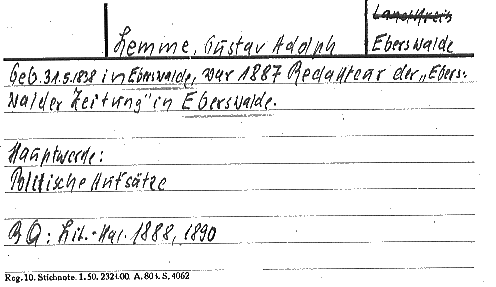 Landkreis
Lemme, Gustav Adolph
Eberswalde
Geb. 31.5.1838 in Eberswalde, war 1887 Redakteur der „Ebers-
walder Zeitung" in Eberswalde.
Hauptwerke:
Politische Aufsätze
BQ: Lit.-Kal. 1888, 1890
Reg. 10. Stichnote. 1. 50. 232400. A. 80 t. S. 4062